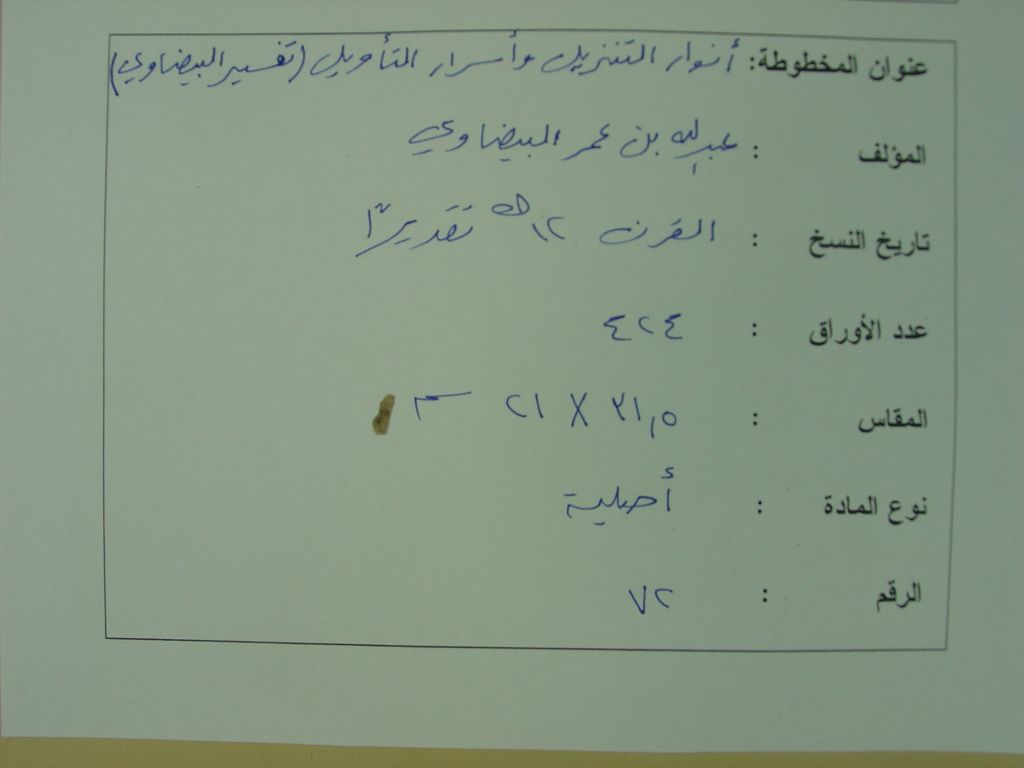 عنوان المخطوطة: أنوار التنزيل وأسرار التأويل (تفسير البيضاوي)
المؤلف : عبدالله بن عمر البيضاوي
تاريخ النسخ : القرن ١٢هـ تقديرًا
عدد الأوراق : ٤٢٤
المقاس : ٣١,٥ X ٢١ سم
نوع المادة : أصلية
الرقم : ٧٢